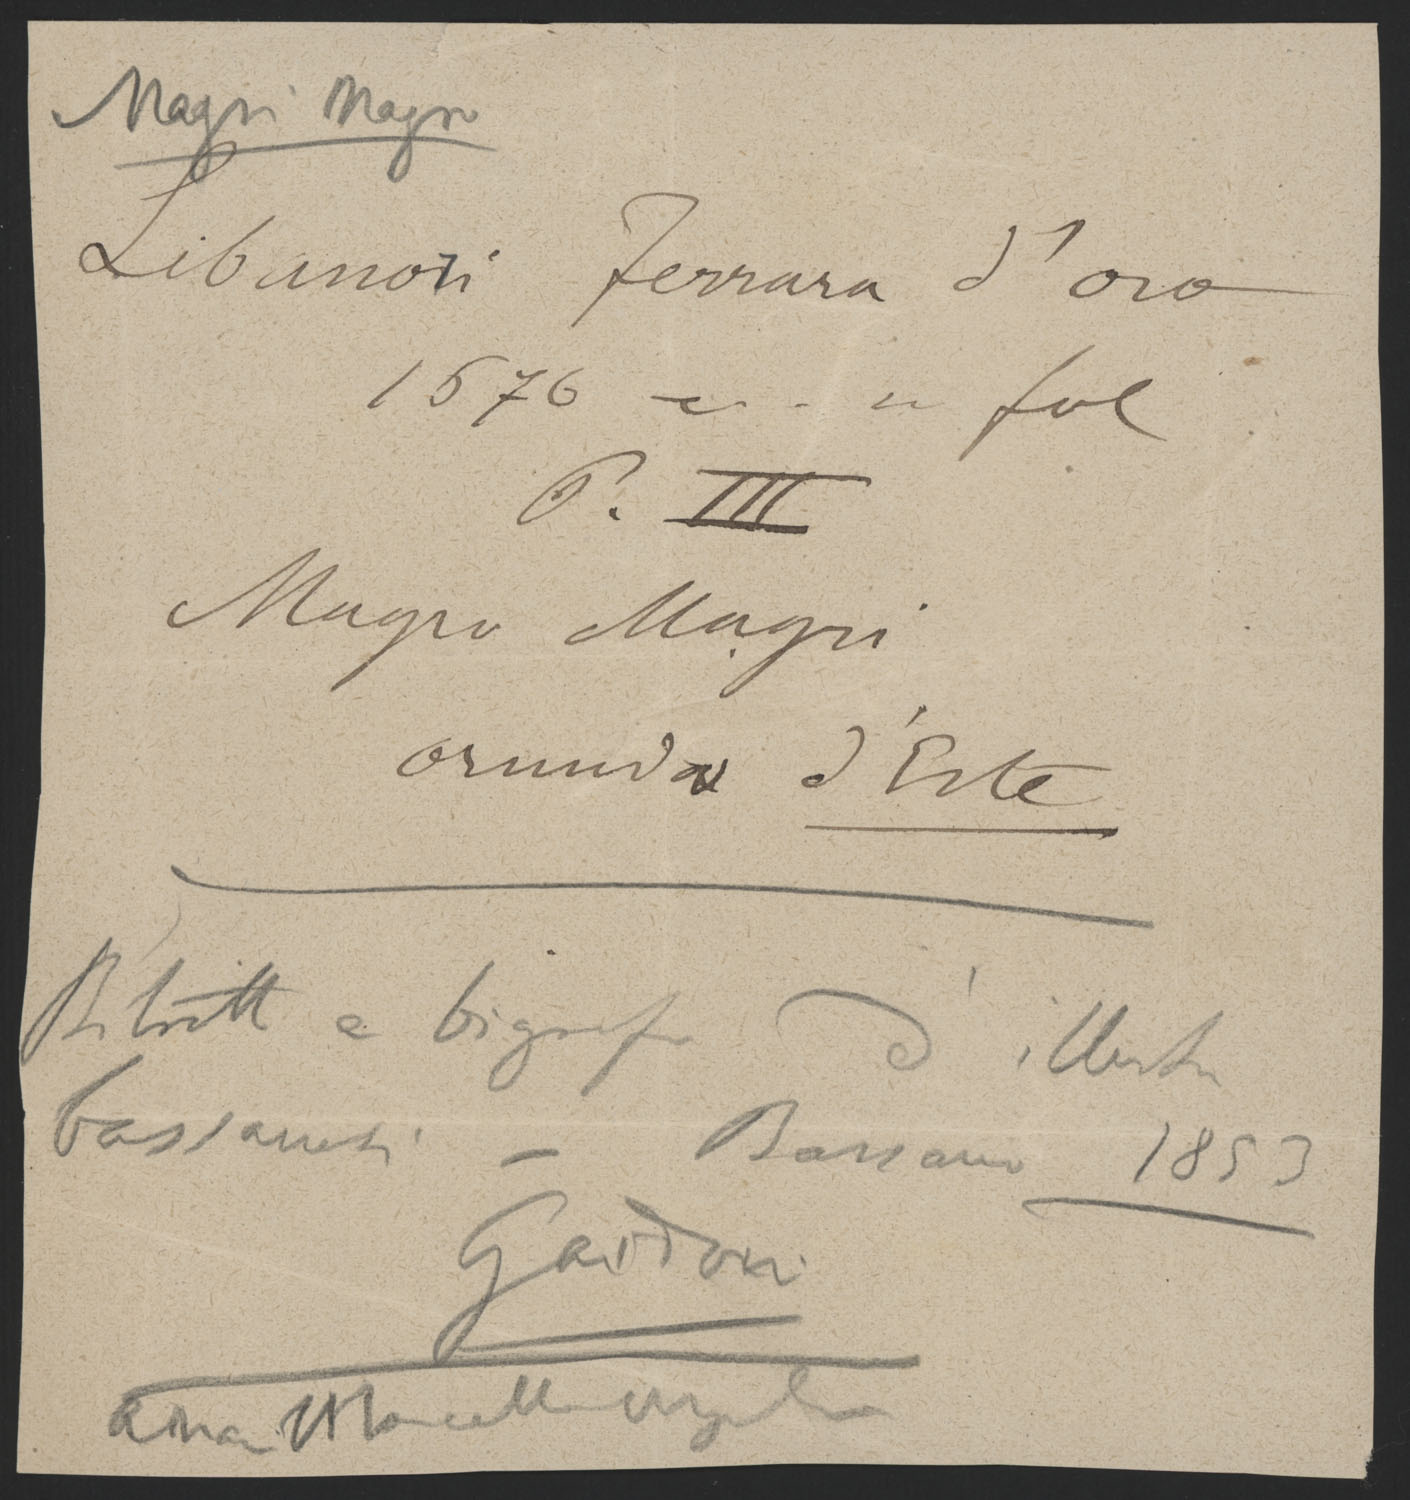 Magri Magro
Libanori Ferrara d'oro
1676 fol
P. III
Magro Magri
oriundo d'Este
Ritratti e biografie d'illustri
bassanesi - Bassano 1853
Gaidoni
Marcello